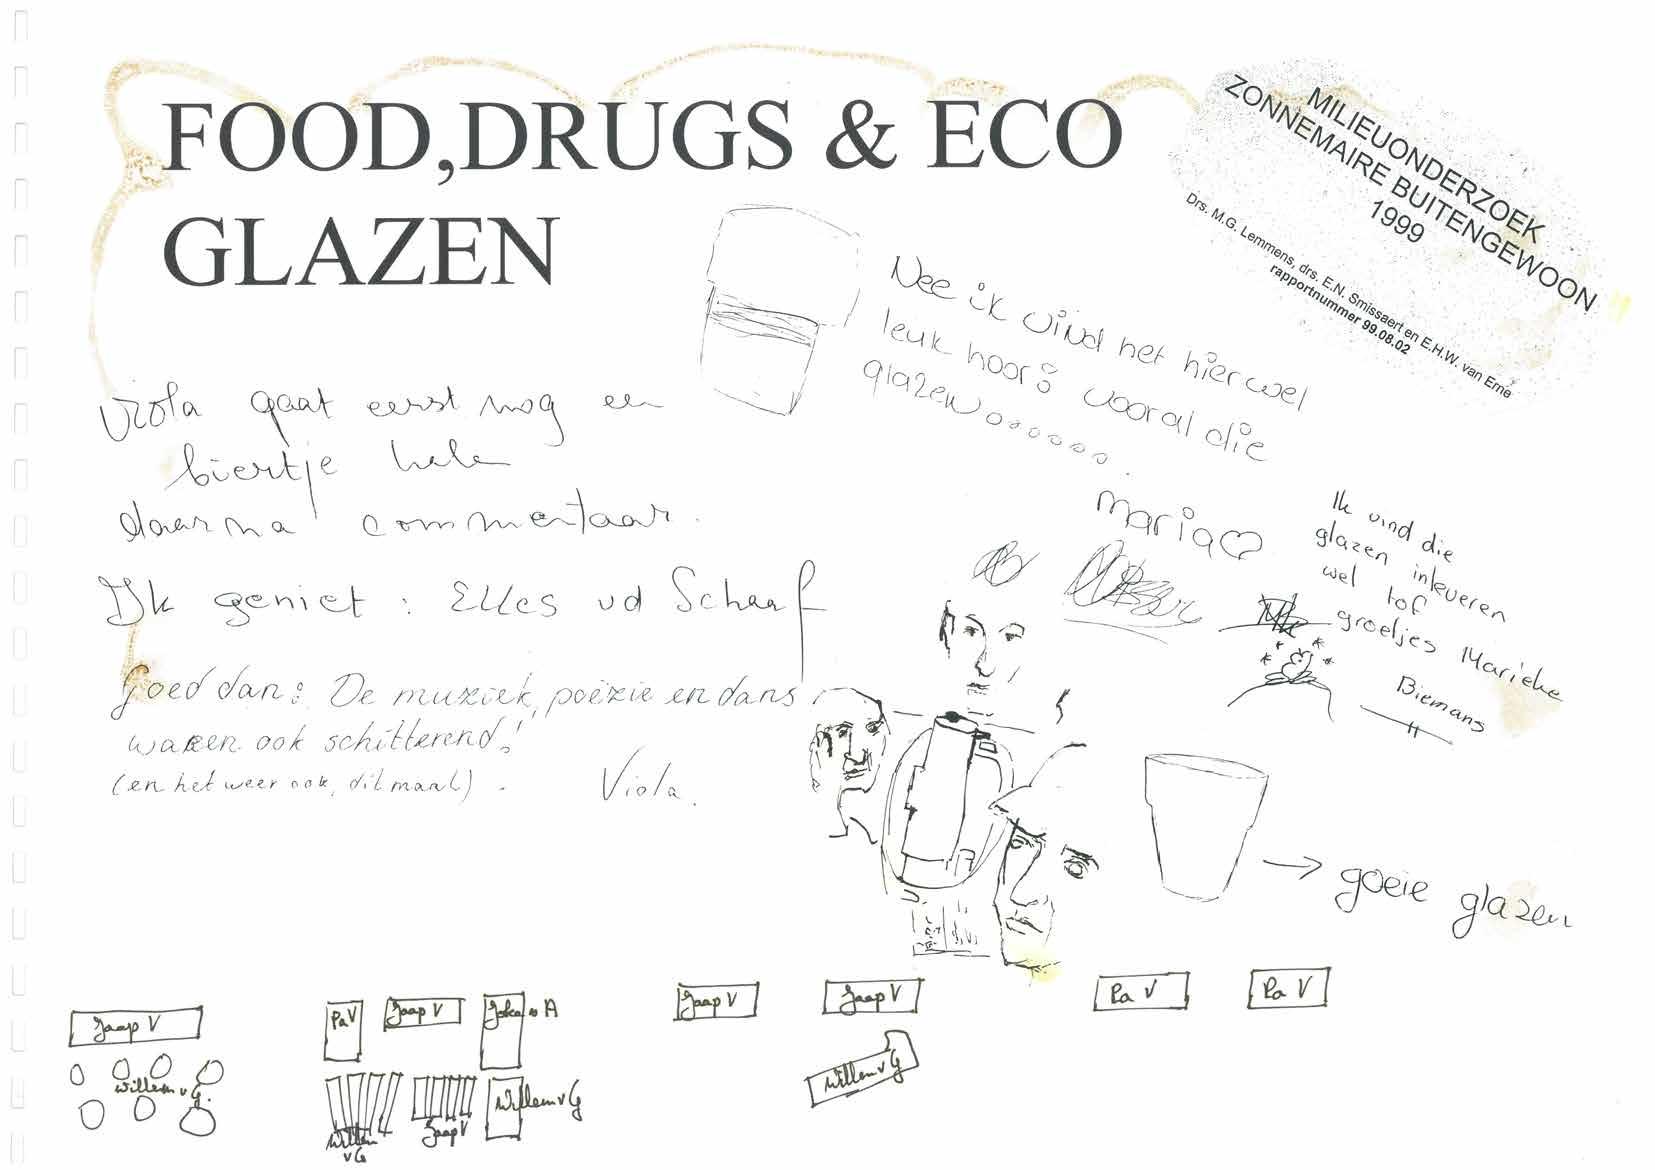 FOOD,DRUGS & ECO
GLAZEN
MILIEUONDERZOEK
ZONNEMAIRE BUITENGEWOON
1999
Drs. M.G. Lemmens, drs. E.N. Smissaert en E.H.W. van Erne
rapportnummer 99.08.02
Nee ik vind het hier wel
leuk hoor: vooral die
glazen.......
maria
Viola gaat eerst nog een
biertje halen
daarna commentaar.
Ik geniet: Elles vd Schaaf
Goed dan: De muziek, poëzie en dans
waren ook schitterend!
(en het weer ook, dit maal).
Viola.
Ik vind die
glazen inleveren
wel tof
groetjes Marieke
Biemans
→ goeie glazen
Jaap V
Willem v G.
Pa V
Jaap V
Willem
v G
Jaap V
Willem v G
Jaap V
Jaap V
Willem v G
Pa V
Pa V